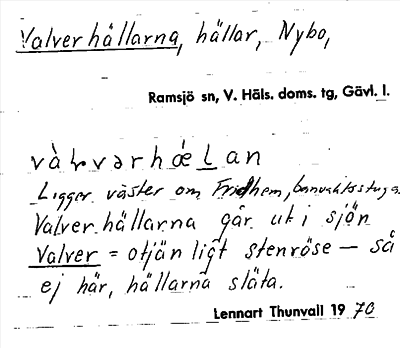 Valverhällarna, hällar, Nybo,
Ramsjö sn, V. Häls. doms. tg, Gävl. l.
Ligger väster om Fridhem, banvaktsstuga.
Valverhällarna går ut i sjön
Valver = otjänligt stenröse – så
ej här, hällarna släta.
Lennart Thunvall 1970